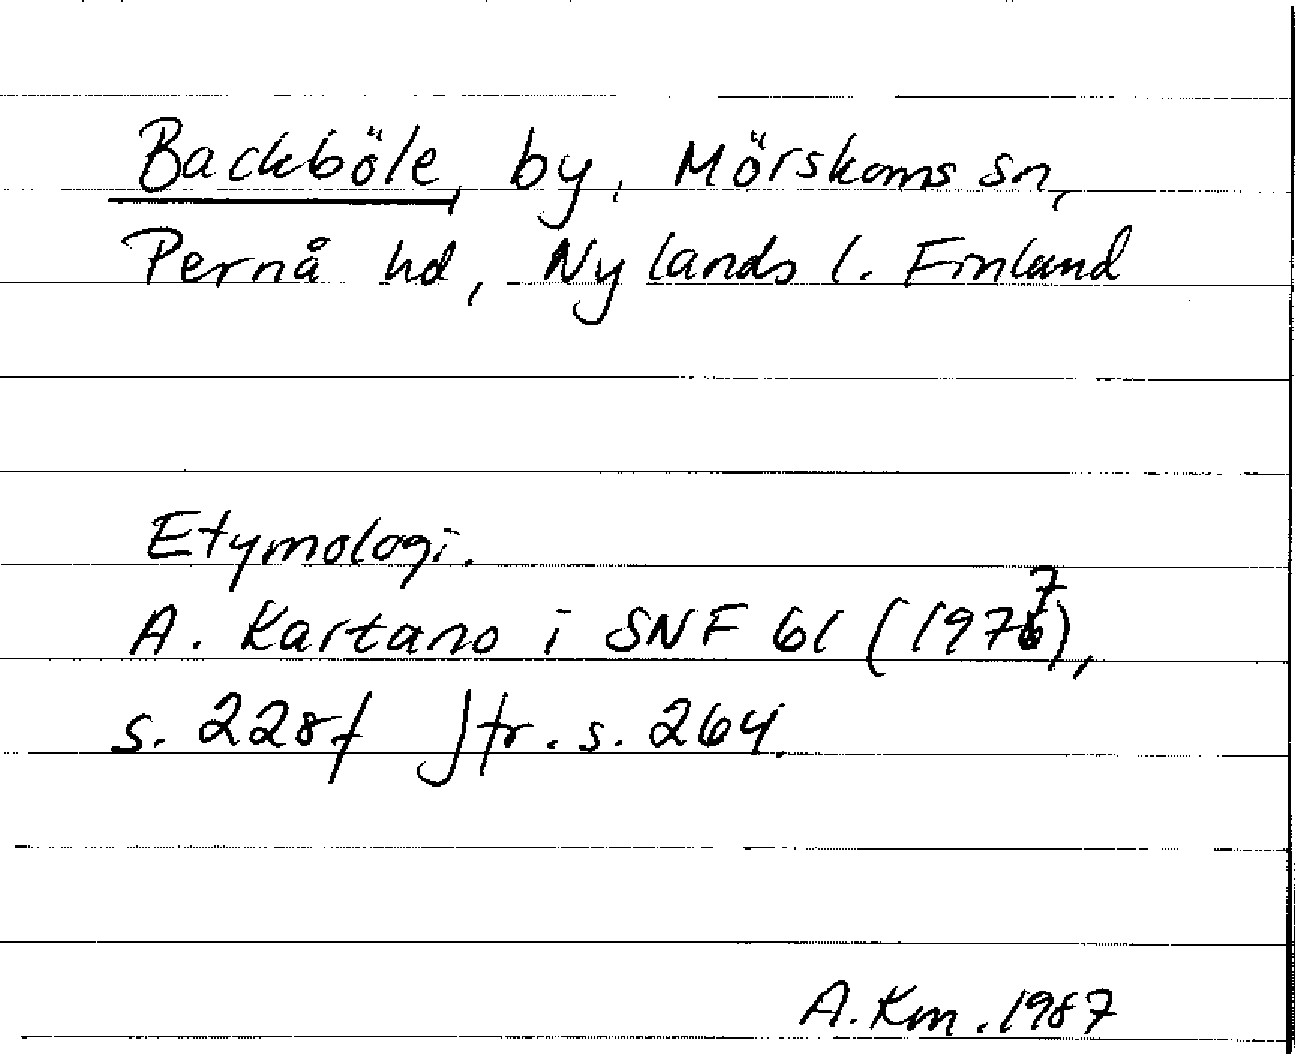 Backböle, by, Mörskoms sn,
Pernå hd, Nylands l. Finland
Etymologi.
A. Kartano i SNF 61 (1977),
s. 228f Jfr. s. 264.
A. Km. 1987